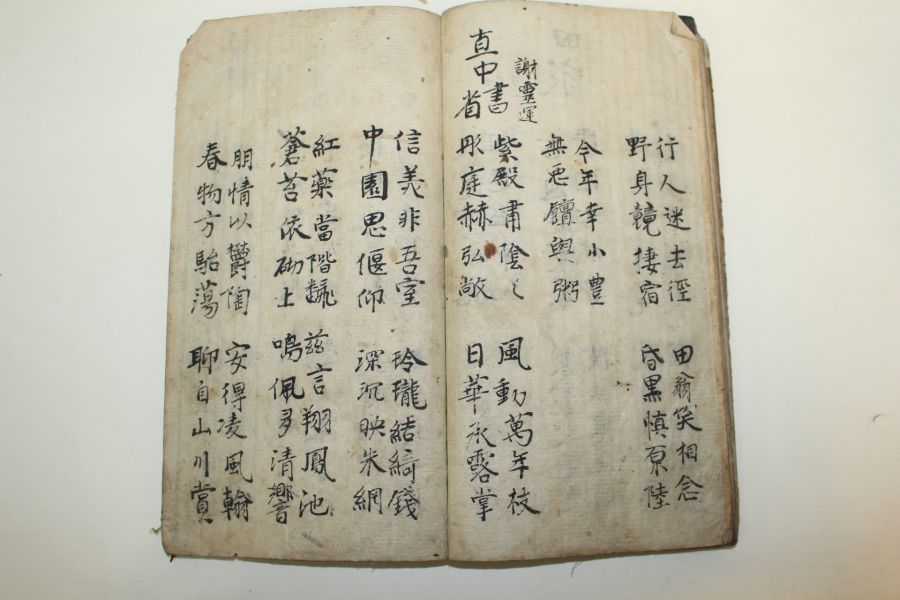 行人迷去徑
野身競棲宿
田翁笑相念
昏黑慎原陸
今年幸小豊
無悪饘與粥
直中書省
謝靈運
紫殿肅陰々
彤庭赫弘敞
風動萬年枝
日華承露掌
信義非吾室
中園思偃仰
玲瓏結綺錢
深沉映朱網
紅藥當階飜
蒼苔依砌上
茲言翔鳳池
鳴佩多清響
朋情以欝陶
春物方駘蕩
安得凌風翰
聊自山川賞